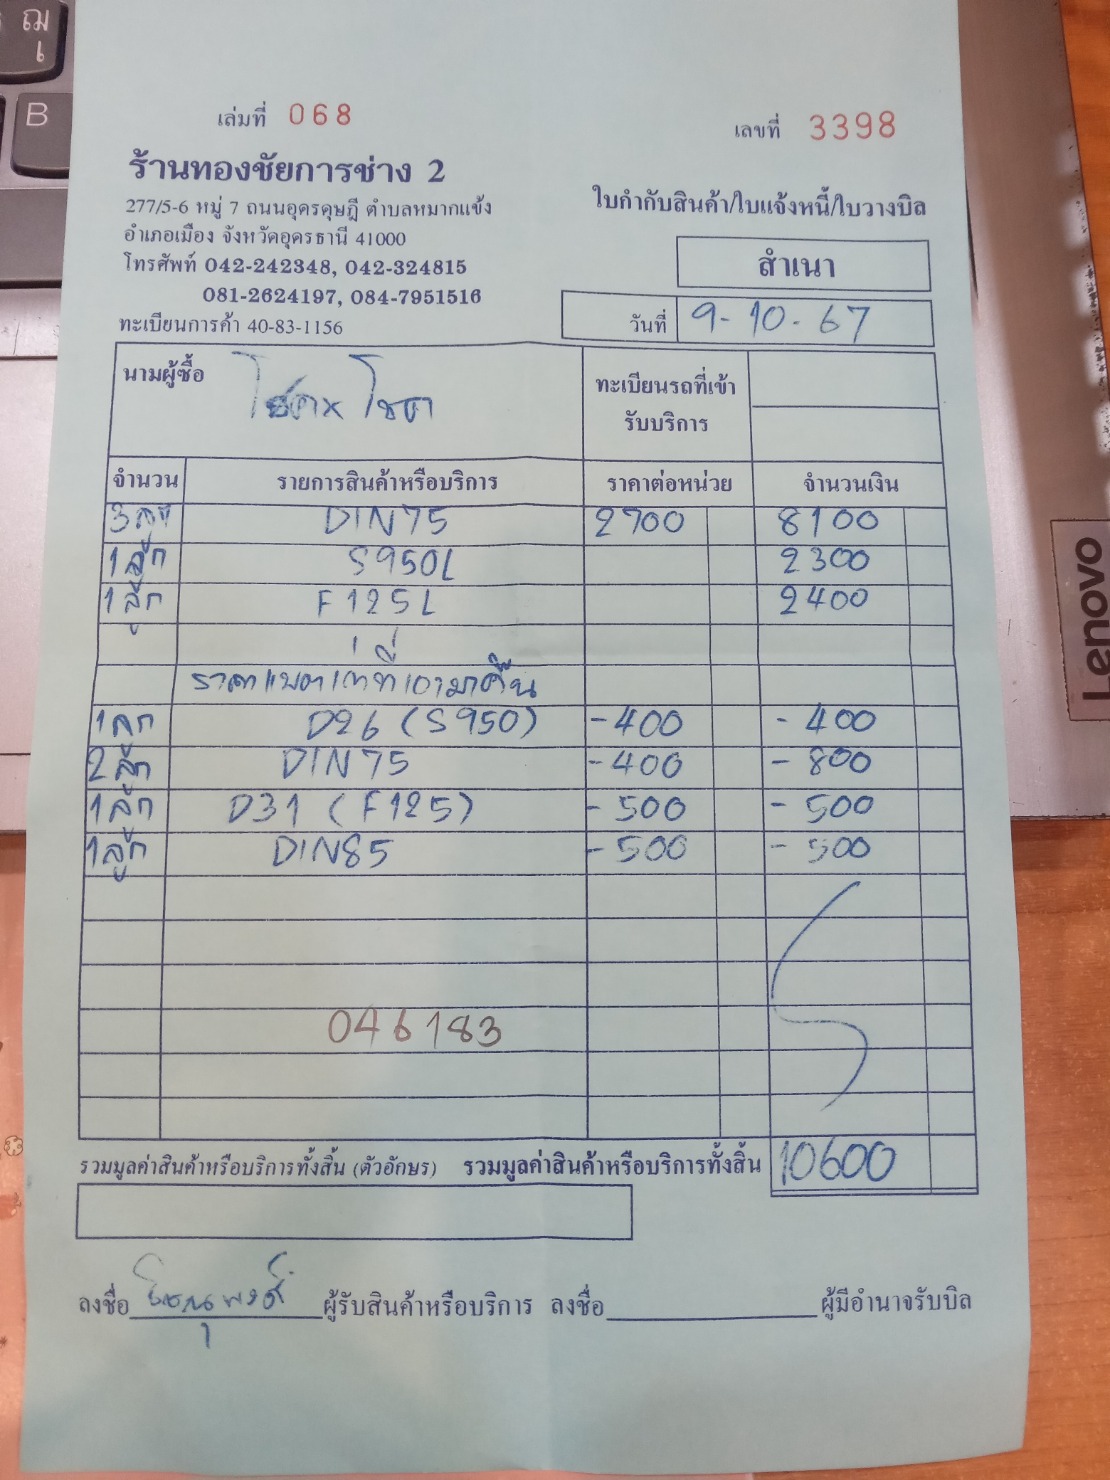 ฌ
เ
B
เล่มที่ 068
เลขที่ 3398
ร้านทองชัยการช่าง 2
277/5-6 หมู่ 7 ถนนอุดรดุษฎี ตำบลหมากแข้ง
อำเภอเมือง จังหวัดอุดรธานี 41000
โทรศัพท์ 042-242348, 042-324815
081-2624197, 084-7951516
ทะเบียนการค้า 40-83-1156
ใบกำกับสินค้า/ใบแจ้งหนี้/ใบวางบิล
สำเนา
วันที่ 9-10-67
นามผู้ซื้อ โชค
ทะเบียนรถที่เข้า
รับบริการ
จำนวน รายการสินค้าหรือบริการ ราคาต่อหน่วย จำนวนเงิน
3 ลูก DIN75 2700 8100
1 ลูก S950L 2300
1 ลูก F125L 2400
ราคาแบตเก่าที่เอามาคืน
1 ลูก D26 (S950) -400 -400
2 ลูก DIN75 -400 -800
1 ลูก D31 (F125) -500 -500
1 ลูก DIN85 -500 -500
046183
รวมมูลค่าสินค้าหรือบริการทั้งสิ้น (ตัวอักษร) รวมมูลค่าสินค้าหรือบริการทั้งสิ้น 10600
ลงชื่อ ผู้รับสินค้าหรือบริการ ลงชื่อ ผู้มีอำนาจรับบิล
Lenovo